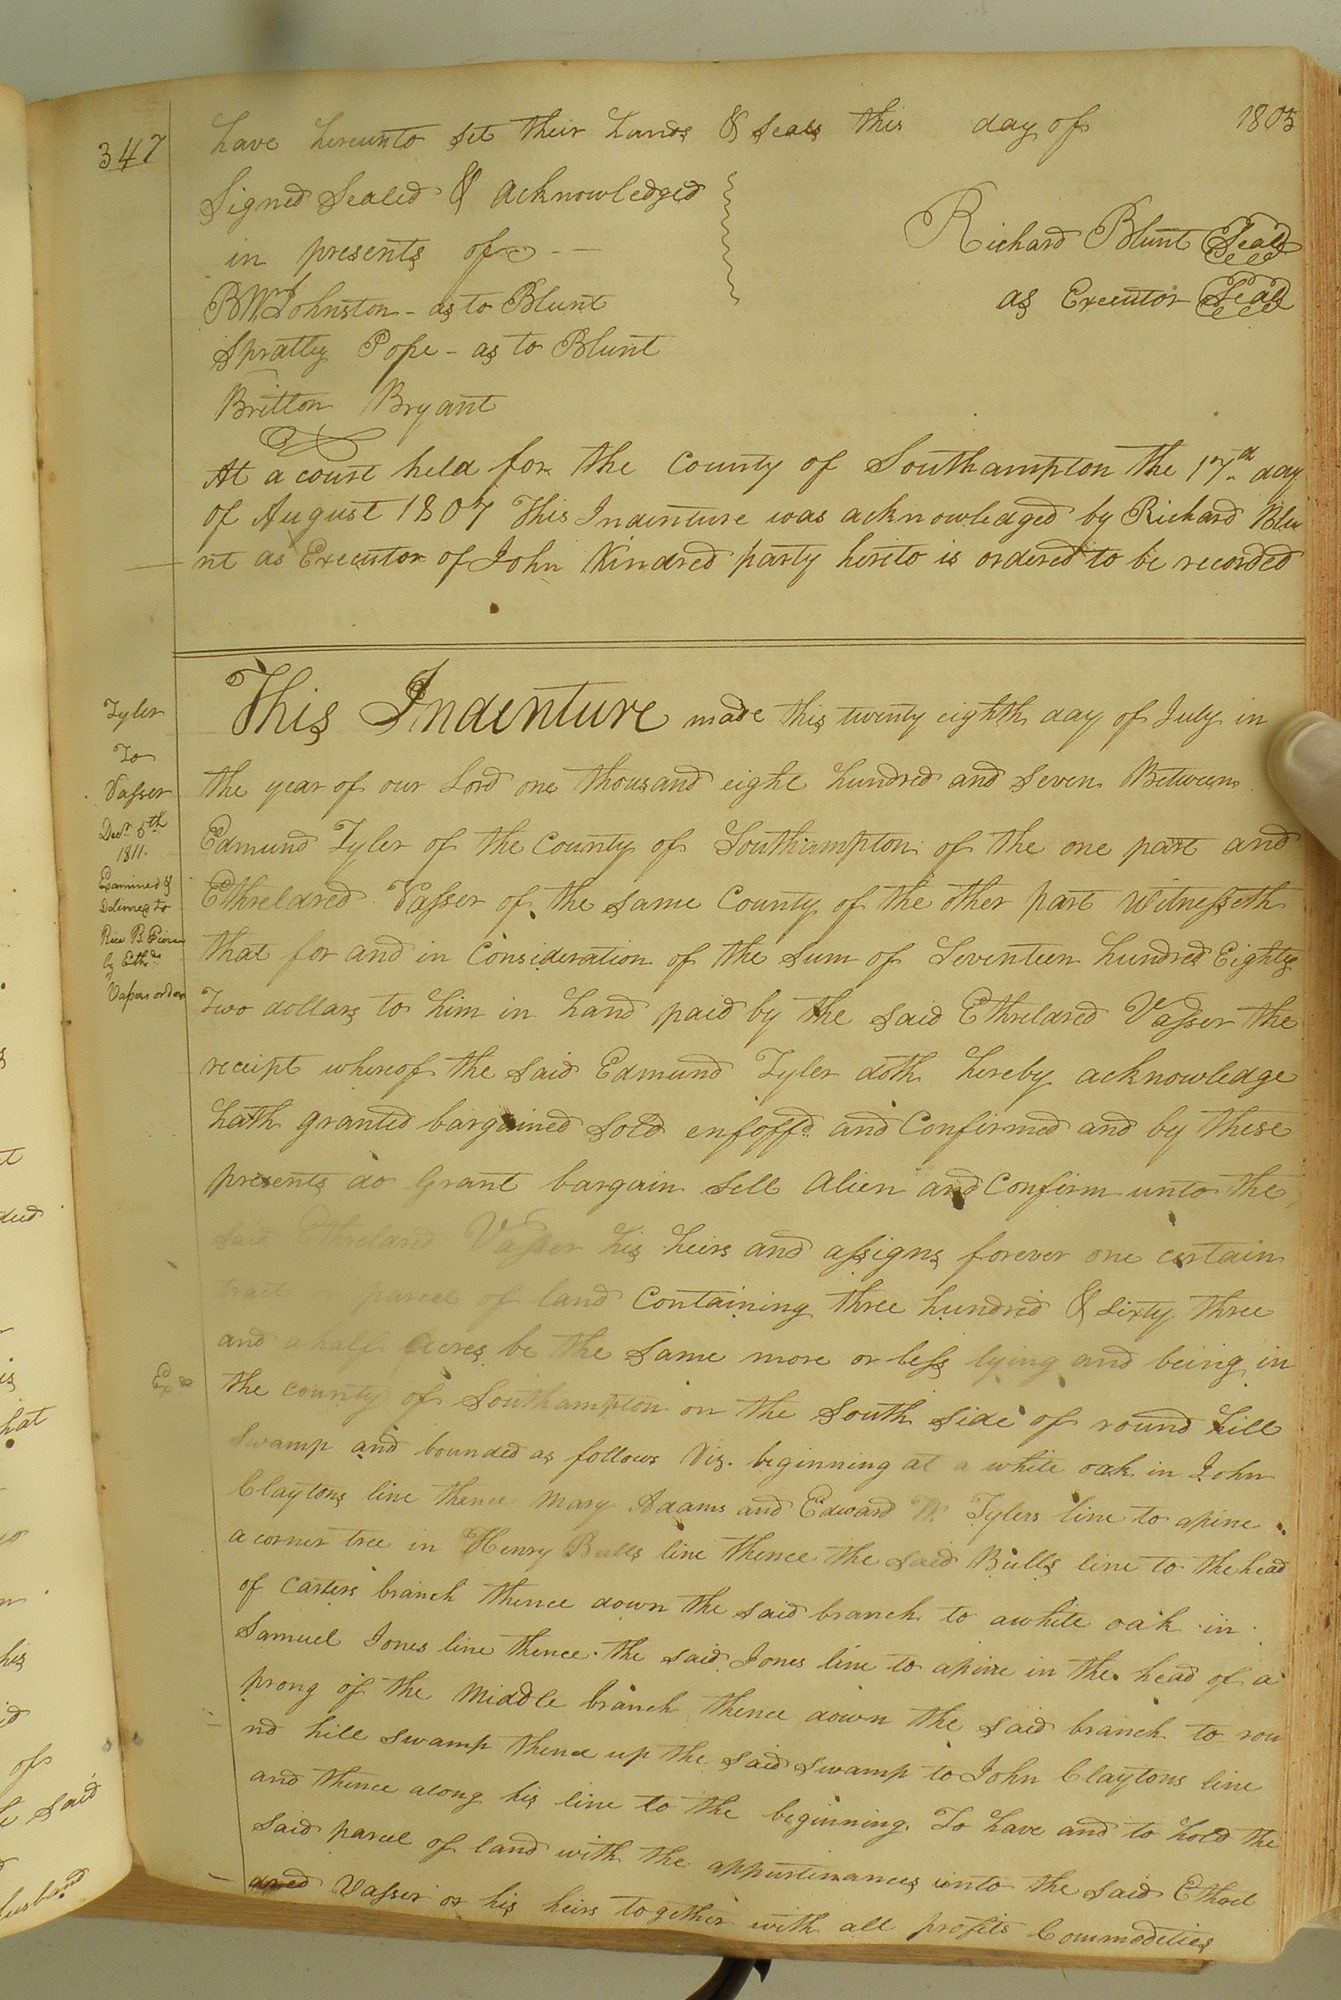 347
have hereunto set their hands & seals this day of 1805
Signed Sealed & acknowledged
in presents of
Richard Blunt Seal
as Executor Seal
Johnston - as to Blunt
Spratley Pope - as to Blunt
Britton Bryant
At a court held for the County of Southampton the 17th day
of August 1807 This Indenture was acknowledged by Richard Blu
nt as Executor of John Kindred party hereto is ordered to be recorded
Tyler
To
Vasser
Decr. 5th
1811.
Examined &
Delivered to
Rice B Pierce
by Ethd.
Vasser order
This Indenture made this twenty eighth day of July in
the year of our Lord one thousand eight hundred and seven Between
Edmund Tyler of the County of Southampton of the one part and
Ethreldred Vasser of the same County of the other part Witnesseth
that for and in Consideration of the sum of Seventeen hundred Eighty
Two dollars to him in hand paid by the said Ethreldred Vasser the
receipt whereof the said Edmund Tyler doth hereby acknowledge
hath granted bargained sold enfoffd. and Confirmed and by these
presents do Grant bargain sell Alien and Confirm unto the
said Ethreldred Vasser his heirs and assigns forever one certain
tract or parcel of land Containing three hundred & sixty three
and a half Acres be the same more or less lying and being in
the county of Southampton on the South side of round hill
Swamp and bounded as follows Viz. beginning at a white oak in John
Claytons line thence Mary Adams and Edward W. Tylers line to apine
a corner tree in Henry Bulls line thence the said Bulls line to the head
of Carters branch thence down the said branch to awhite oak in
Samuel Jones line thence the said Jones line to apine in the head of a
prong of the Middle branch thence down the said branch to rou
nd hill swamp thence up the said swamp to John Claytons line
and thence along his line to the beginning. To have and to hold the
said parcel of land with the appurtinances unto the said Ethrel
dred Vasser or his heirs together with all profits Commodities